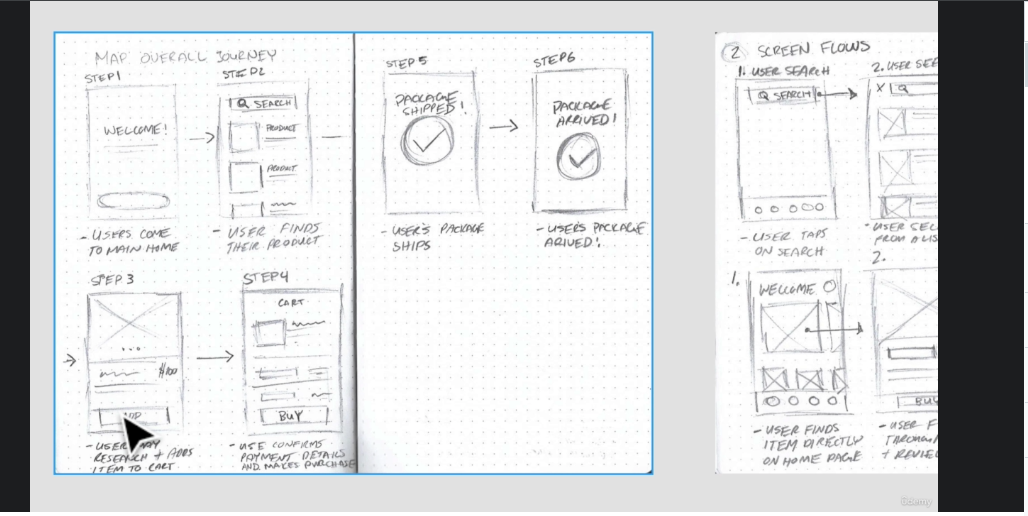 MAP OVERALL JOURNEY
STEP 1
WELCOME!
- USERS COME
TO MAIN HOME
STEP 2
SEARCH
PRODUCT
PRODUCT
- USER FINDS
THEIR PRODUCT
STEP 3
$100
- USER MAY
RESEARCH + ADDS
ITEM TO CART
STEP 4
CART
BUY
- USE CONFIRMS
PAYMENT DETAILS
AND MAKES PURCHASE
STEP 5
PACKAGE
SHIPPED!
- USER'S PACKAGE
SHIPS
STEP 6
PACKAGE
ARRIVED!
- USERS PACKAGE
ARIVED!
2 SCREEN FLOWS
1. USER SEARCH
SEARCH
- USER TAPS
ON SEARCH
2. USER SEE
X
- USER SEL
FROM A LIS
1.
WELCOME
- USER FINDS
ITEM DIRECTLY
ON HOME PAGE
2.
BUY
- USER F
THROUGH
+ REVIE
Udemy